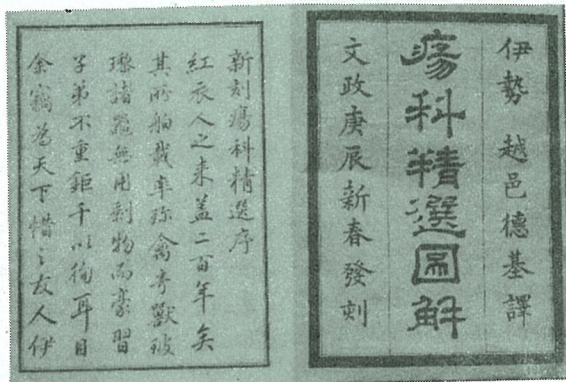 伊勢 越邑德基譯
瘍科精選圖解
文政庚辰新春發刻
新刻瘍科精選序
紅衣人之来盖二百年矣
其所舶載率珍禽奇獸玻
瓈諸器無用剝物而豪習
子弟不重鉅千以徇耳目
余竊為天下惜之友人伊